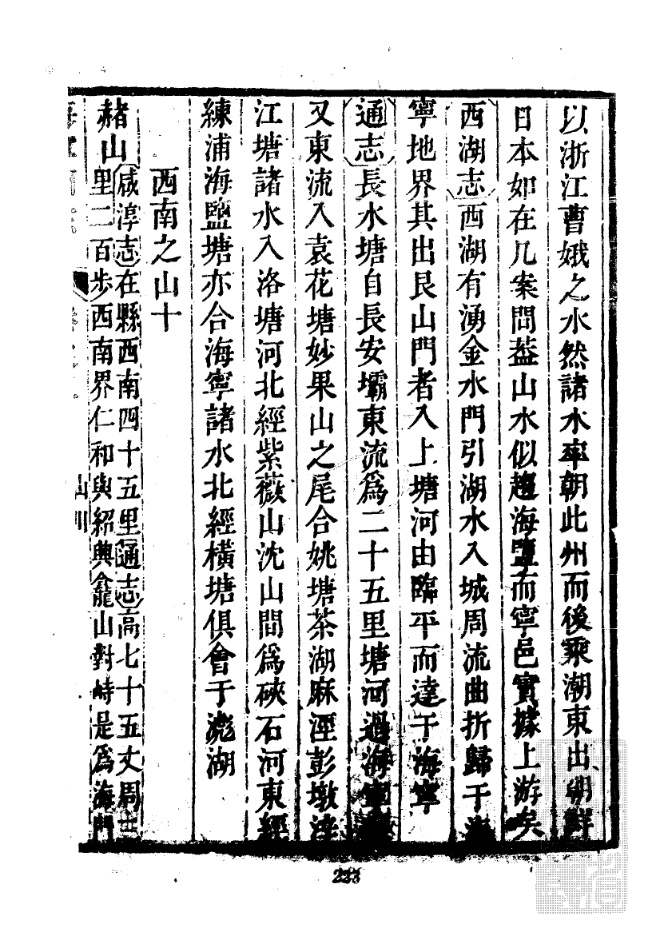 以浙江曹娥之水然諸水率朝此州而後乘潮東出朝鮮
日本如在几案間葢山水似趨海鹽而寧邑實據上游矣
西湖志西湖有湧金水門引湖水入城周流曲折歸于海
寧地界其出艮山門者入上塘河由臨平而達于海寧
通志長水塘自長安壩東流爲二十五里塘河過海寧
又東流入袁花塘妙果山之尾合姚塘茶湖麻涇彭墩
江塘諸水入洛塘河北經紫薇山沈山間爲硤石河東經
練浦海鹽塘亦合海寧諸水北經橫塘俱會于湖
西南之山十
赭山咸淳志在縣西南四十五里通志高七十五丈周
里二百步西南界仁和與紹興龕山對峙是爲海門
山川
223